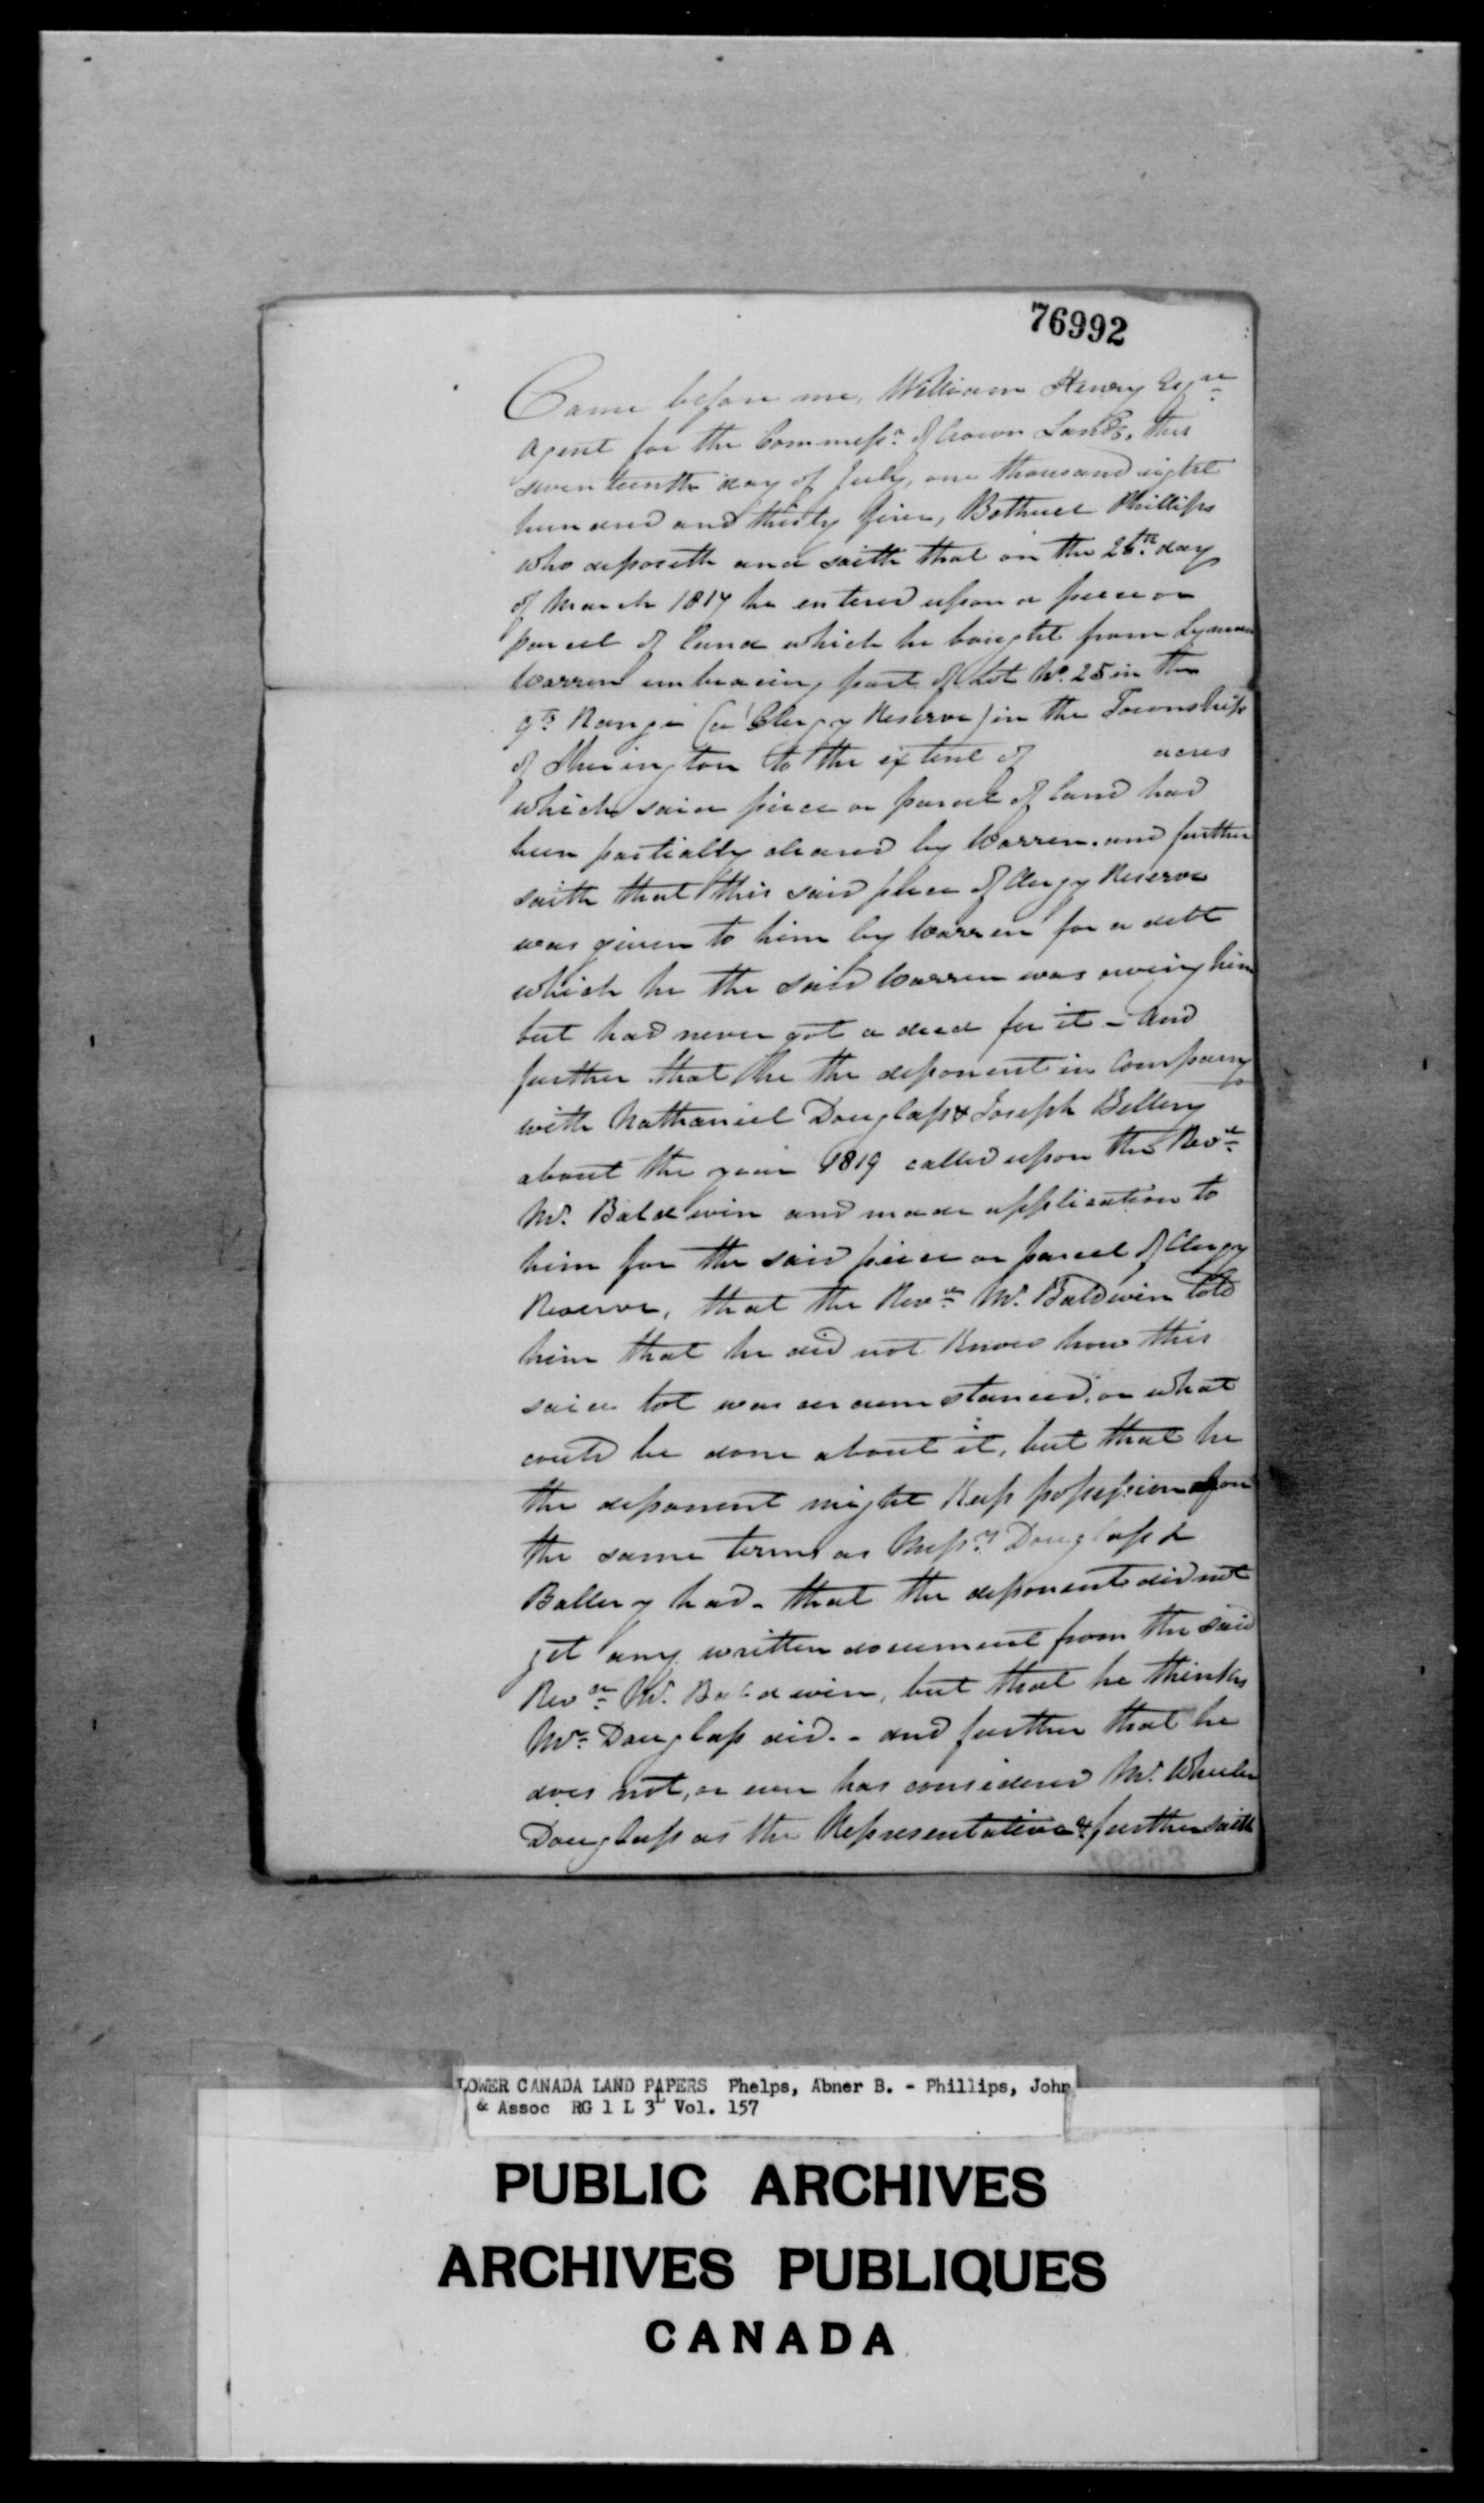 76992
Came before me, William Henry Esqre
Agent for the Commissr. of Crown Lands, this
seventeenth day of July, one thousand eight
hundred and thirty five, Bethuel Phillips
who deposeth and saith that on the 26th. day
of March 1817 he entered upon a piece or
parcel of land which he bought from Lyman
Warren embracing part of Lot No. 25 in the
9th Range (a Clergy Reserve) in the Township
of Sherington to the extent of acres
which said piece or parcel of land had
been partially cleared by Warren. and further
saith that this said piece of Clergy Reserve
was given to him by Warren for a debt
which he the said Warren was owing him
but had never got a deed for it – And
further that he the deponent in Company
with Nathaniel Douglass & Joseph
about the year 1819 called upon the Revd.
Mr. Baldwin and made application to
him for the said piece or parcel of Clergy
Reserve, that the Revd. Mr. Baldwin told
him that he did not Know how this
said lot was circumstanced, or what
could be done about it, but that he
the deponent might Keep possession upon
the same terms as Messrs. Douglass &
had – that the deponent did not
get any written document from the said
Revd. Mr. Baldwin, but that he thinks
Mr. Douglass did. – and further that he
does not, or ever has considered Mr. Wheeler
Douglass as the Representative & further saith
LOWER CANADA LAND PAPERS Phelps, Abner B. - Phillips, John
& Assoc RG 1 L 3L Vol. 157
PUBLIC ARCHIVES
ARCHIVES PUBLIQUES
CANADA